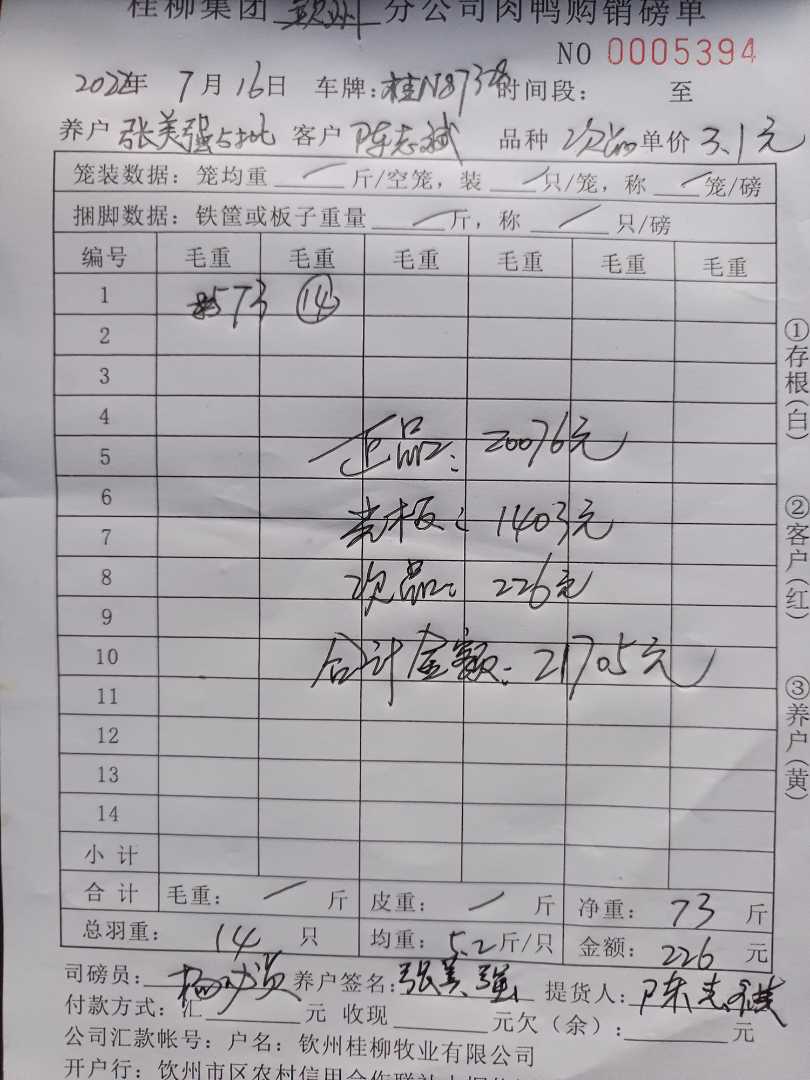 桂柳集团 钦州 分公司肉鸭购销磅单
NO 0005394
2022年 7月16日 车牌:桂N 时间段: 至
养户 张美强 客户 陈志斌 品种 次品 单价 3.1元
笼装数据: 笼均重 斤/空笼, 装 只/笼, 称 笼/磅
捆脚数据: 铁筐或板子重量 斤, 称 只/磅
编号 毛重 毛重 毛重 毛重 毛重 毛重
1 73 14
2
3
4
正品: 20076元
5
6
壳板: 1403元
7
8 次品: 226元
9
10 合计金额: 21705元
11
12
13
14
小计
合计 毛重: 斤 皮重: 斤 净重: 73 斤
总羽重: 14 只 均重: 5.2斤/只 金额: 226 元
司磅员: 养户签名: 张美强 提货人: 陈志斌
付款方式: 汇 元 收现 元欠(余): 元
公司汇款帐号: 户名: 钦州桂柳牧业有限公司
开户行: 钦州市区农村信用合作联社
①存根(白)
②客户(红)
③养户(黄)